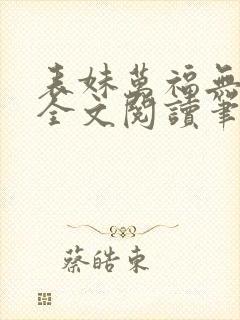 表妹萬福無
全文閱讀筆
蔡皓東